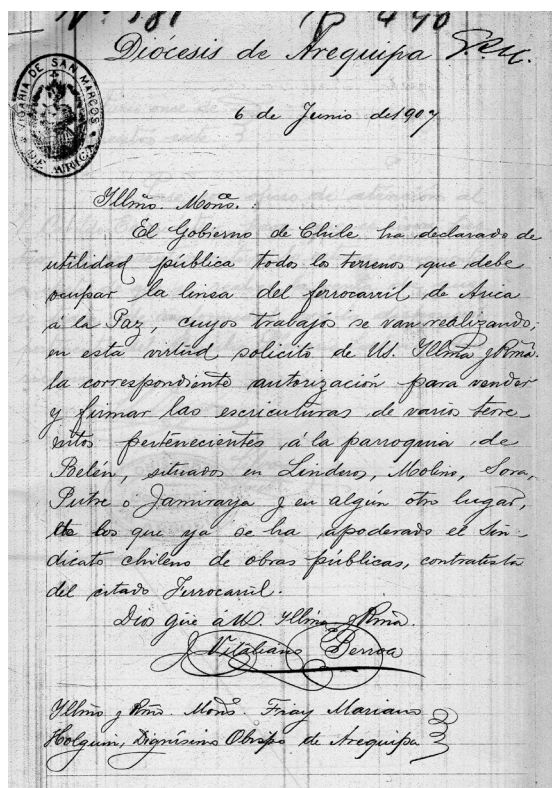 Nº 181
Diócesis de Arequipa
VICARIA DE SAN MARCOS
DE ARICA
6 de Junio de 1907
Illmo. Moñs.:
El Gobierno de Chile ha declarado de
utilidad pública todos los terrenos que debe
ocupar la linea del ferrocarril de Arica
á la Paz, cuyos trabajos se van realizando;
en esta virtud solicito de US. Illma y Rma.
la correspondiente autorización para vender
y firmar las escriculturas de varios terre-
nitos pertenecientes á la parroquia de
Belén, situados en Linderos, Molino, Sora,
Putre o Jamiraya y en algún otro lugar,
de los que ya se ha apoderado el Sin-
dicato chileno de obras públicas, contratista
del citado Ferrocarril.
Dios gúe á US. Illma y Rma.
J. Vitaliano Berroa
Illmo y Rmo. Moñs. Fray Mariano
Holguin, Dignísimo Obispo de Arequipa